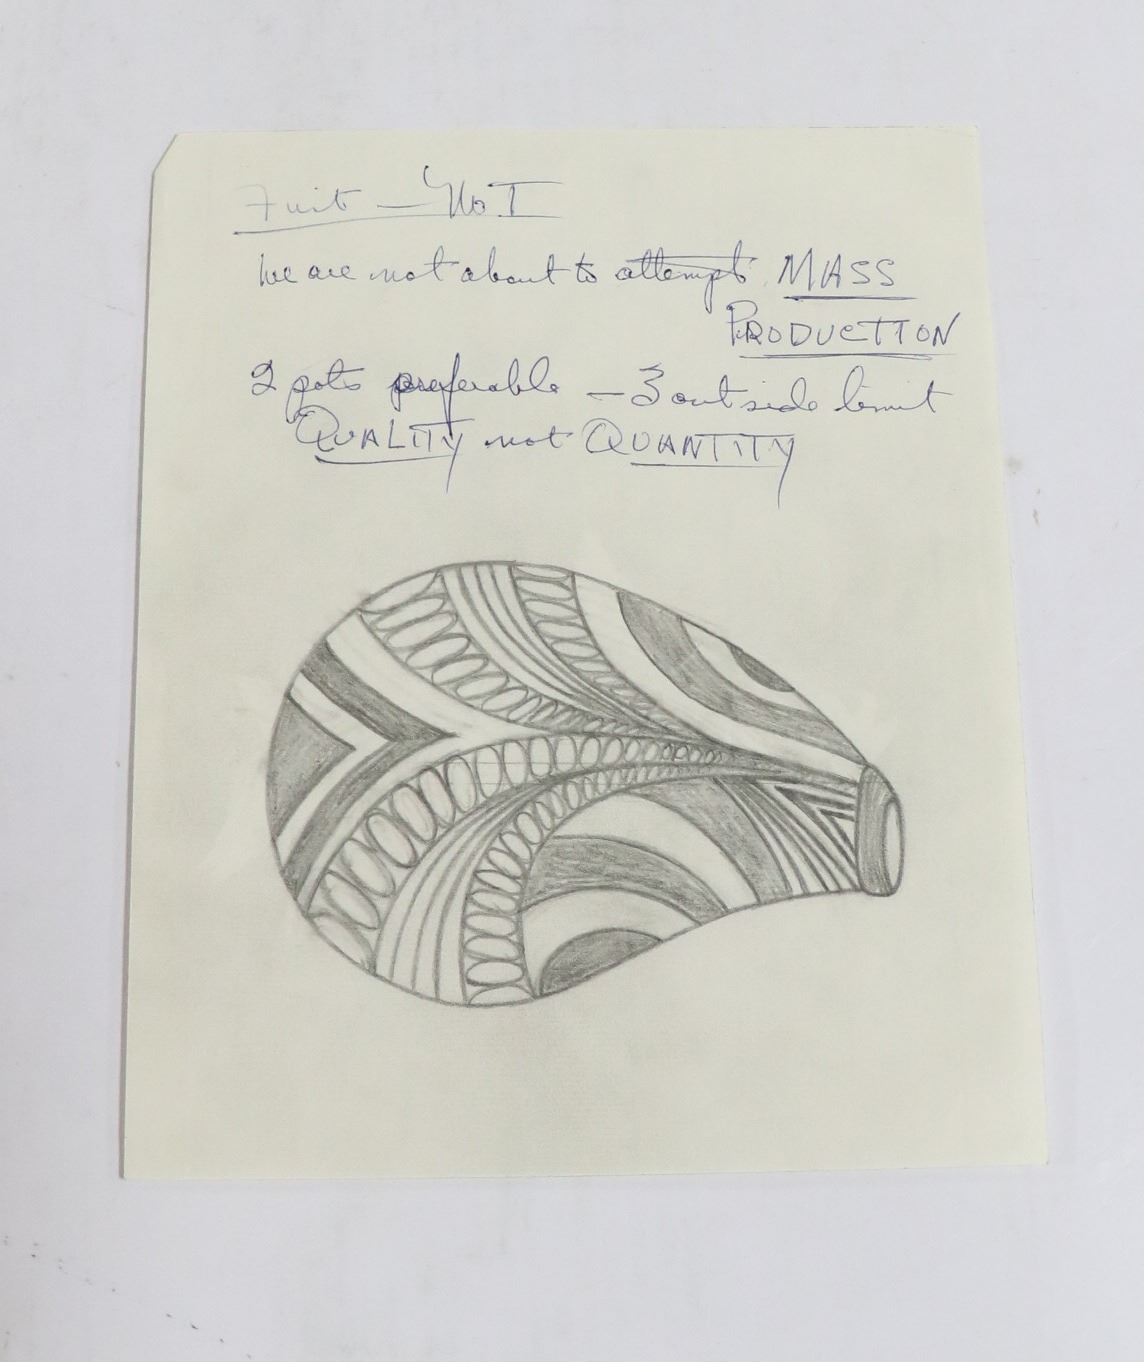 — NOT
we are not about to attempt MASS
PRODUCTION
2 pots preferable — 3 outside limit
QUALITY not QUANTITY